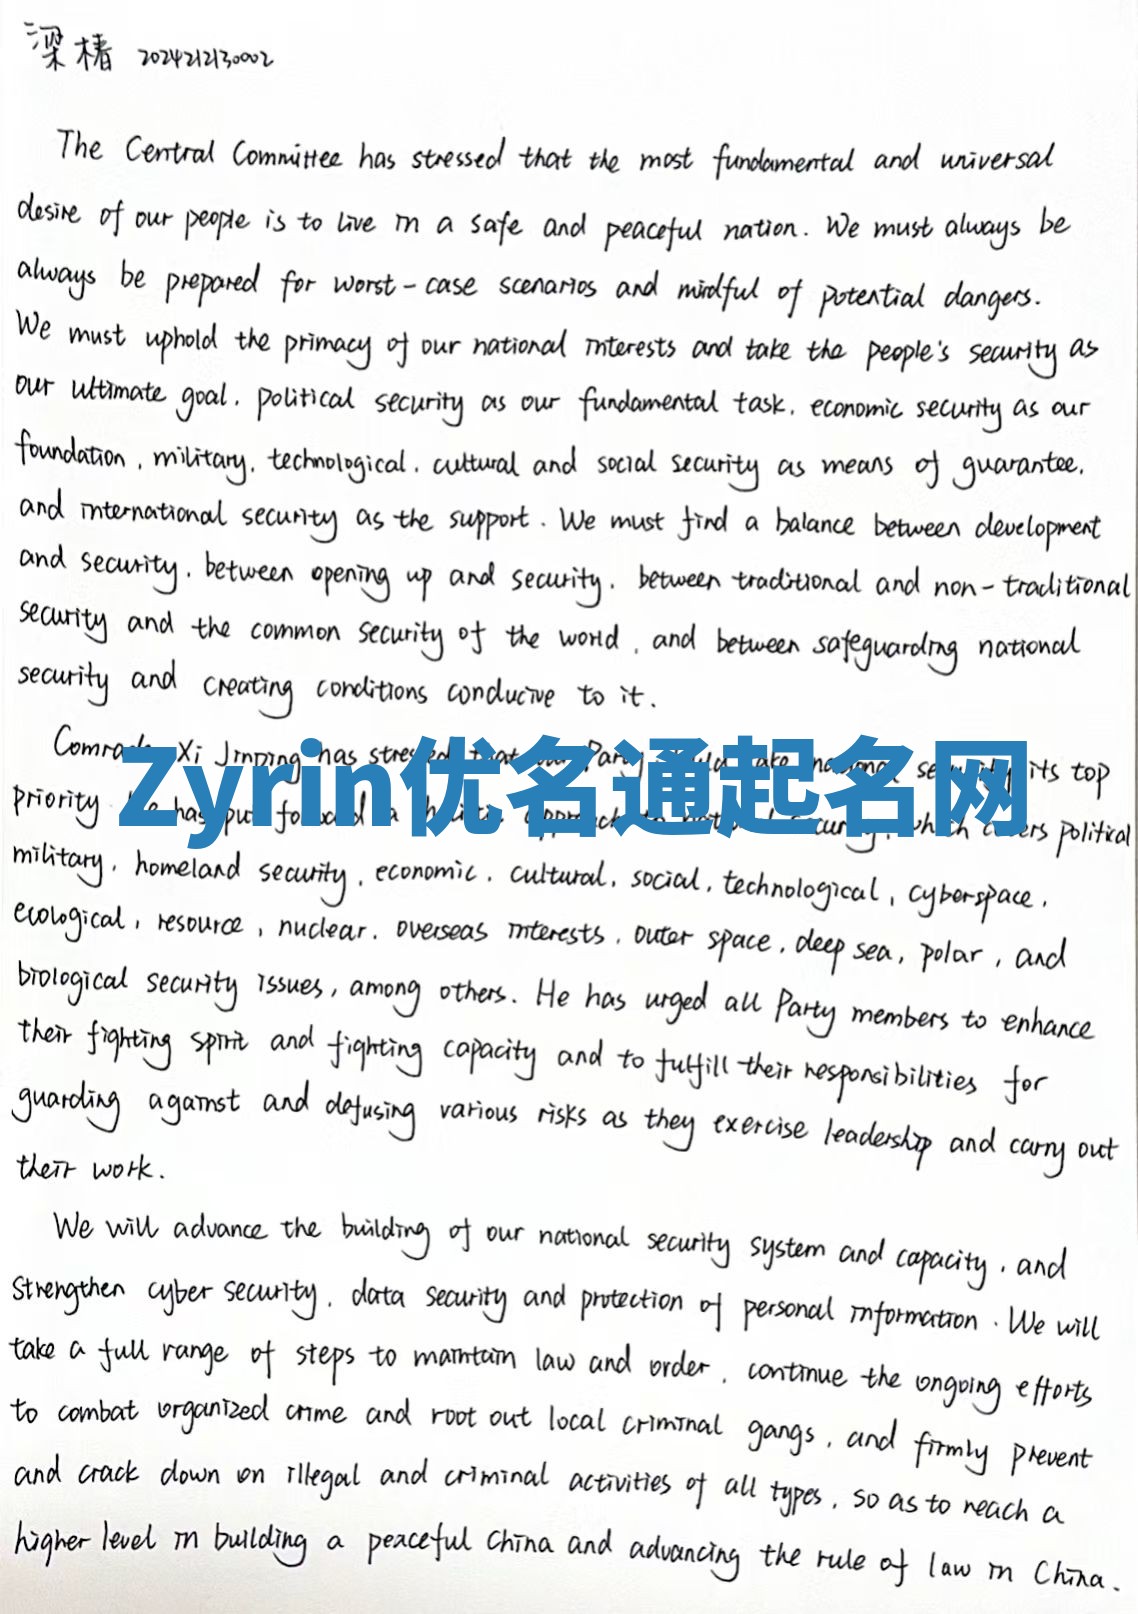 梁椿 2024212130002
The Central Committee has stressed that the most fundamental and universal
desire of our people is to live in a safe and peaceful nation. We must always be
always be prepared for worst-case scenarios and mindful of potential dangers.
We must uphold the primacy of our national interests and take the people's security as
our ultimate goal, political security as our fundamental task, economic security as our
foundation, military, technological, cultural and social security as means of guarantee,
and international security as the support. We must find a balance between development
and security, between opening up and security, between traditional and non-traditional
security and the common security of the world, and between safeguarding national
security and creating conditions conducive to it.
Comrade Xi Jinping has stressed that our Party should take national security its top
Zyrin优名通起名网
priority. He has put forward a holistic approach to national security, which covers political
military, homeland security, economic, cultural, social, technological, cyberspace,
ecological, resource, nuclear, overseas interests, outer space, deep sea, polar, and
biological security issues, among others. He has urged all Party members to enhance
their fighting spirit and fighting capacity and to fulfill their responsibilities for
guarding against and defusing various risks as they exercise leadership and carry out
their work.
We will advance the building of our national security system and capacity, and
strengthen cyber security, data security and protection of personal information. We will
take a full range of steps to maintain law and order, continue the ongoing efforts
to combat organized crime and root out local criminal gangs, and firmly prevent
and crack down on illegal and criminal activities of all types, so as to reach a
higher level in building a peaceful China and advancing the rule of law in China.